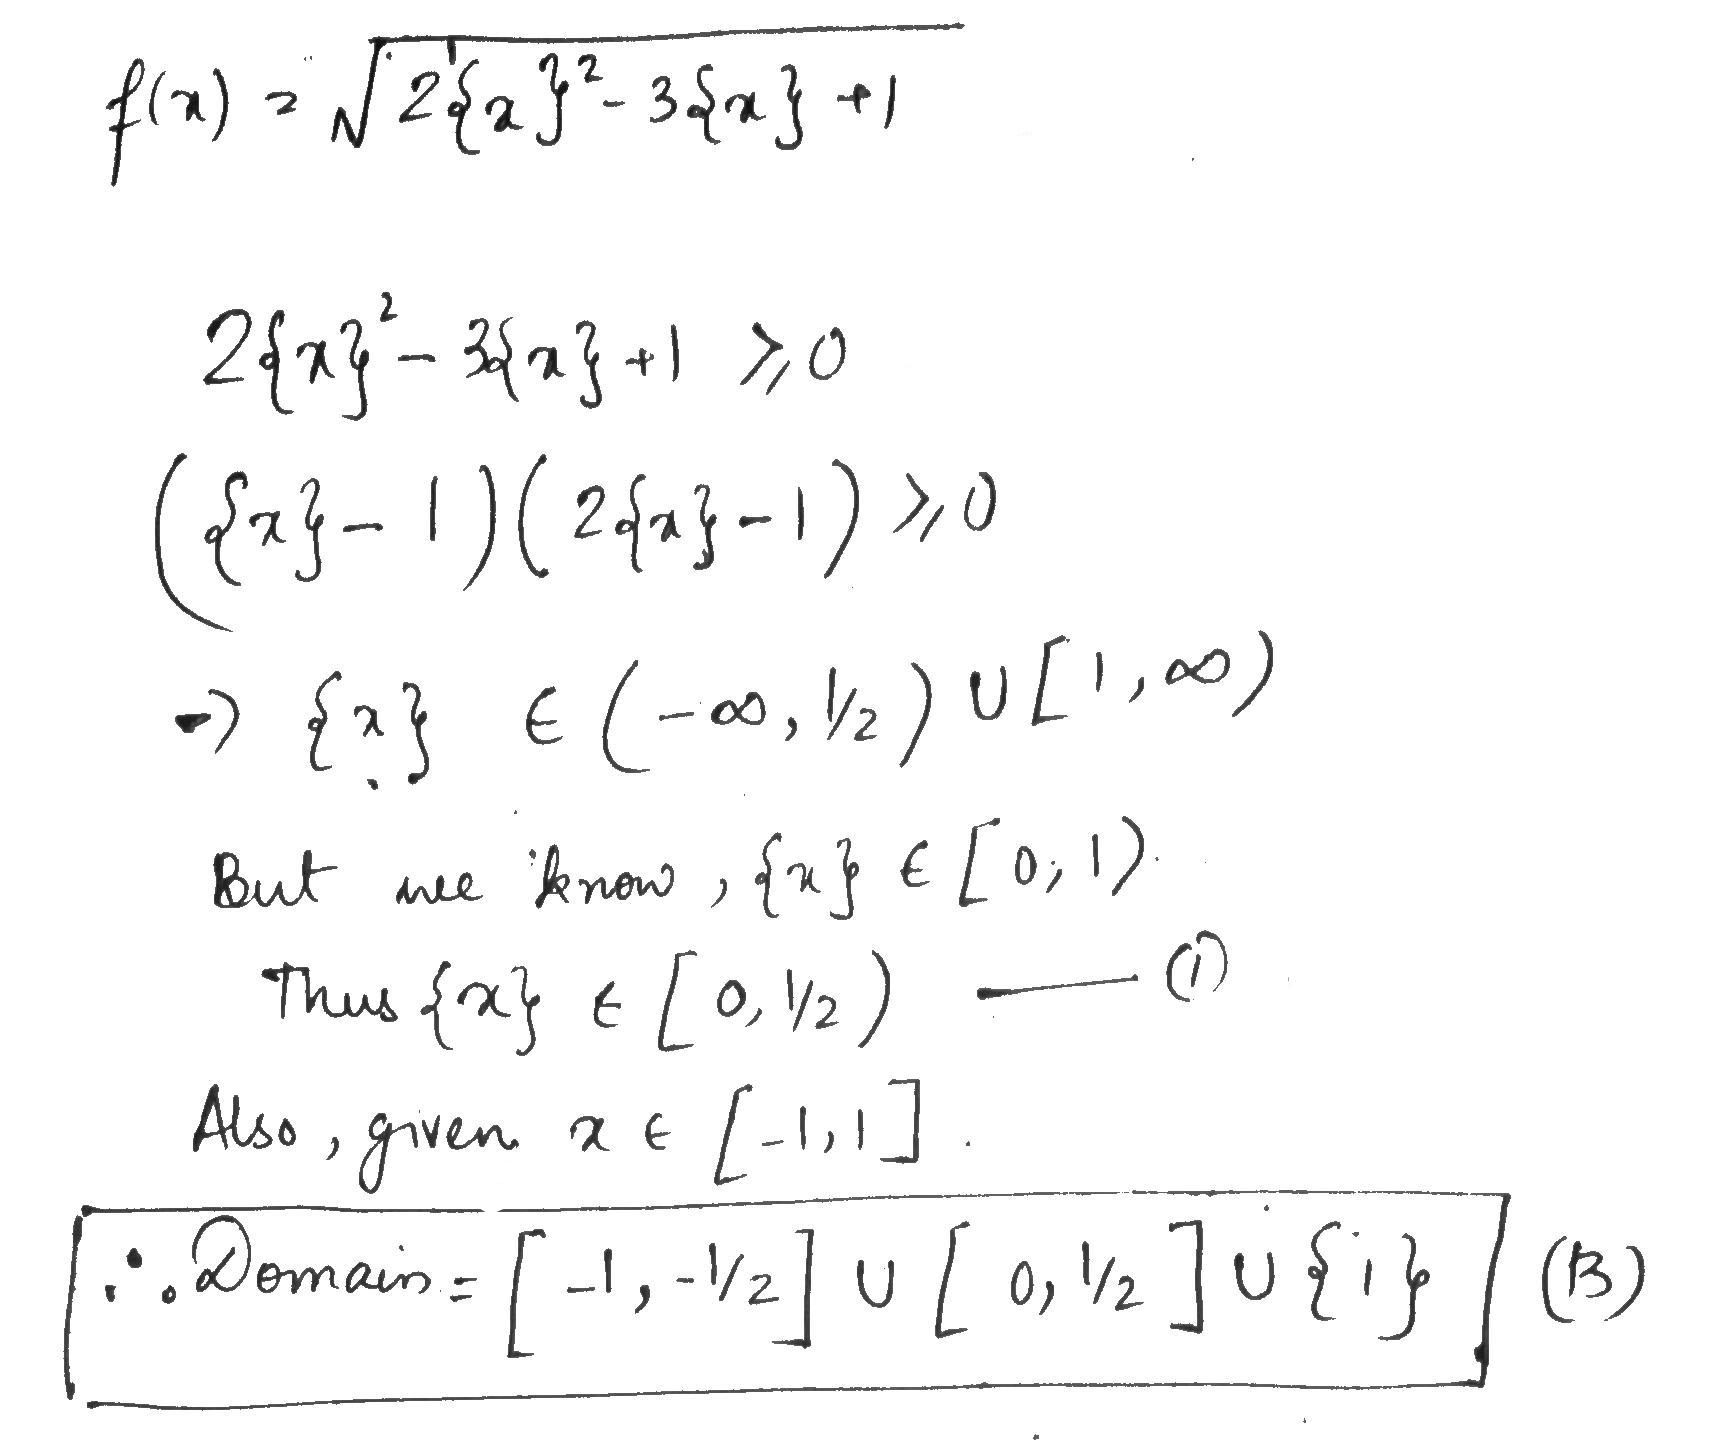 f(x) = √2{x}² - 3{x} + 1
2{x}² - 3{x} + 1 ⩾ 0
({x} - 1)(2{x} - 1) ⩾ 0
→ {x} ∈ (-∞, 1/2) ∪ [1, ∞)
But we know, {x} ∈ [0, 1)
Thus {x} ∈ [0, 1/2) — (i)
Also, given x ∈ [-1, 1].
∴ Domain = [-1, -1/2] ∪ [0, 1/2] ∪ {1} (B)